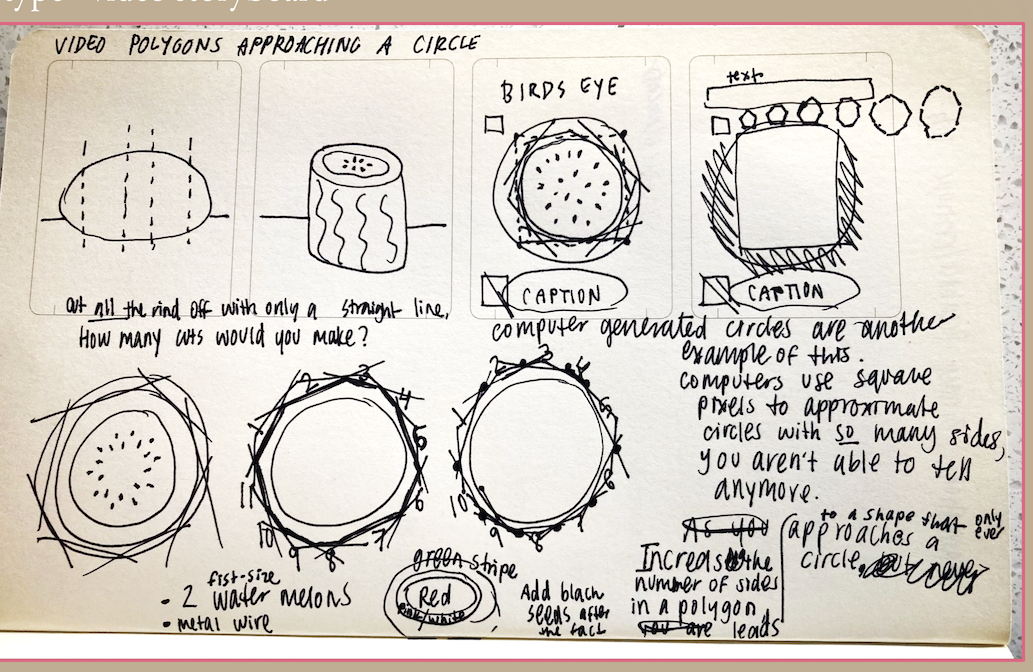 type video storyboard
VIDEO POLYGONS APPROACHING A CIRCLE
BIRDS EYE
text
CAPTION
CAPTION
cut all the rind off with only a straight line,
How many cuts would you make?
computer generated circles are another
example of this.
computers use square
pixels to approximate
circles with so many sides,
you aren't able to tell
anymore.
2 3 4 5 6 7 8 9 10 11
2 3 4 5 8 9 10
• 2 fist-size water melons
• metal wire
green stripe
Red
pink/white
Add black
seeds after
the fact
As you
Increasing the
number of sides
in a polygon
you are leads
to a shape that only ever
approaches a
circle, but never